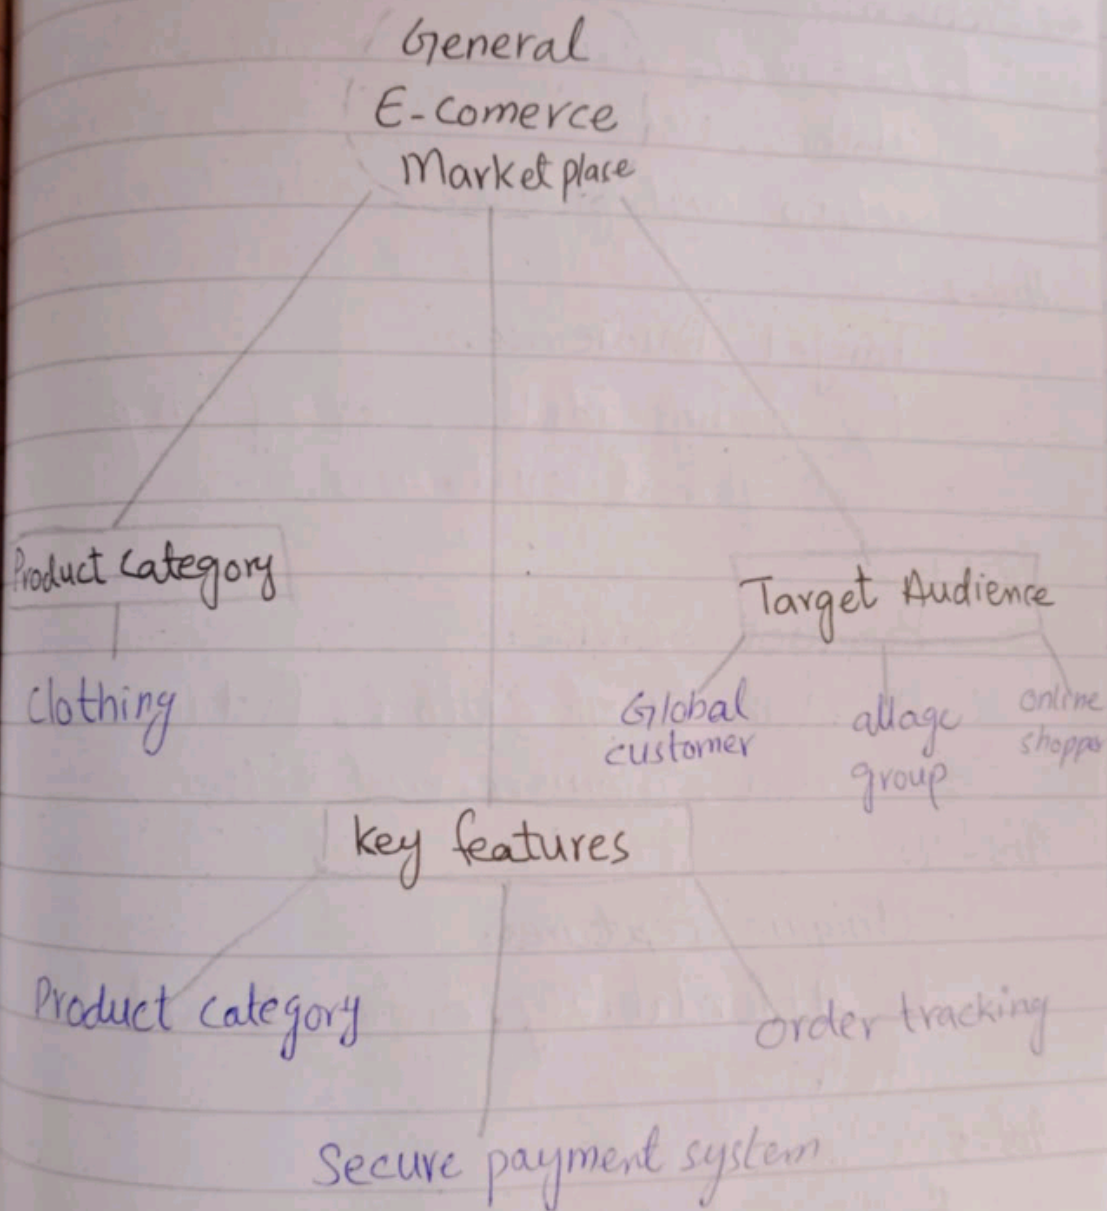 General
E-Comerce
Market place
Product Category
Target Audience
Clothing
Global
customer
allage
group
online
shopper
key features
Product category
order tracking
Secure payment system